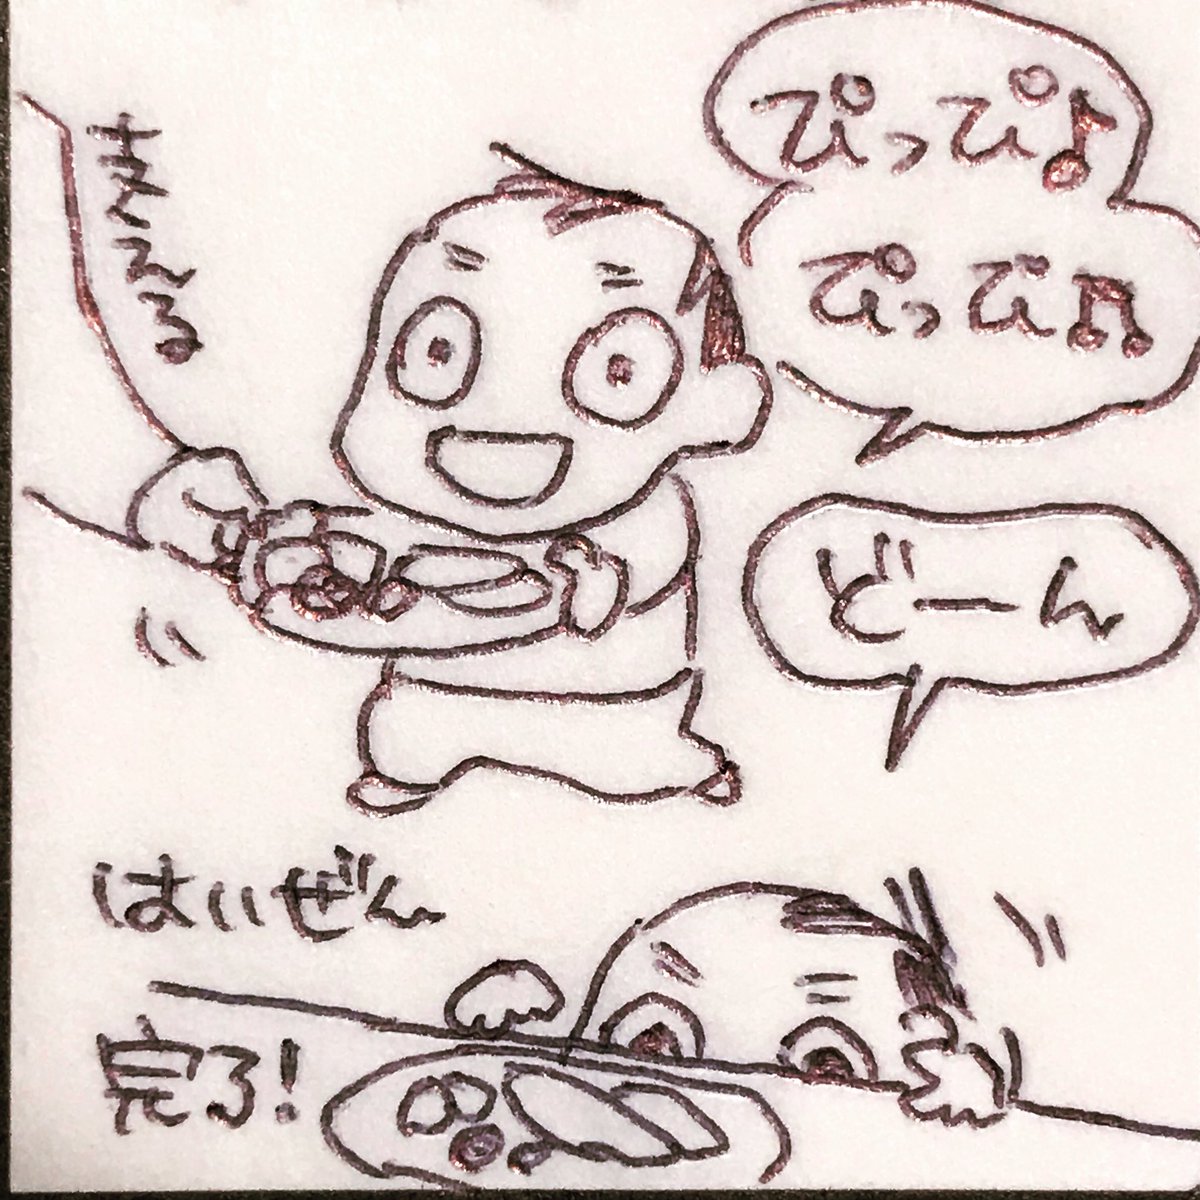 ぴっぴ♪
ぴっぴ♫
支える
どーん
はいぜん
完了!